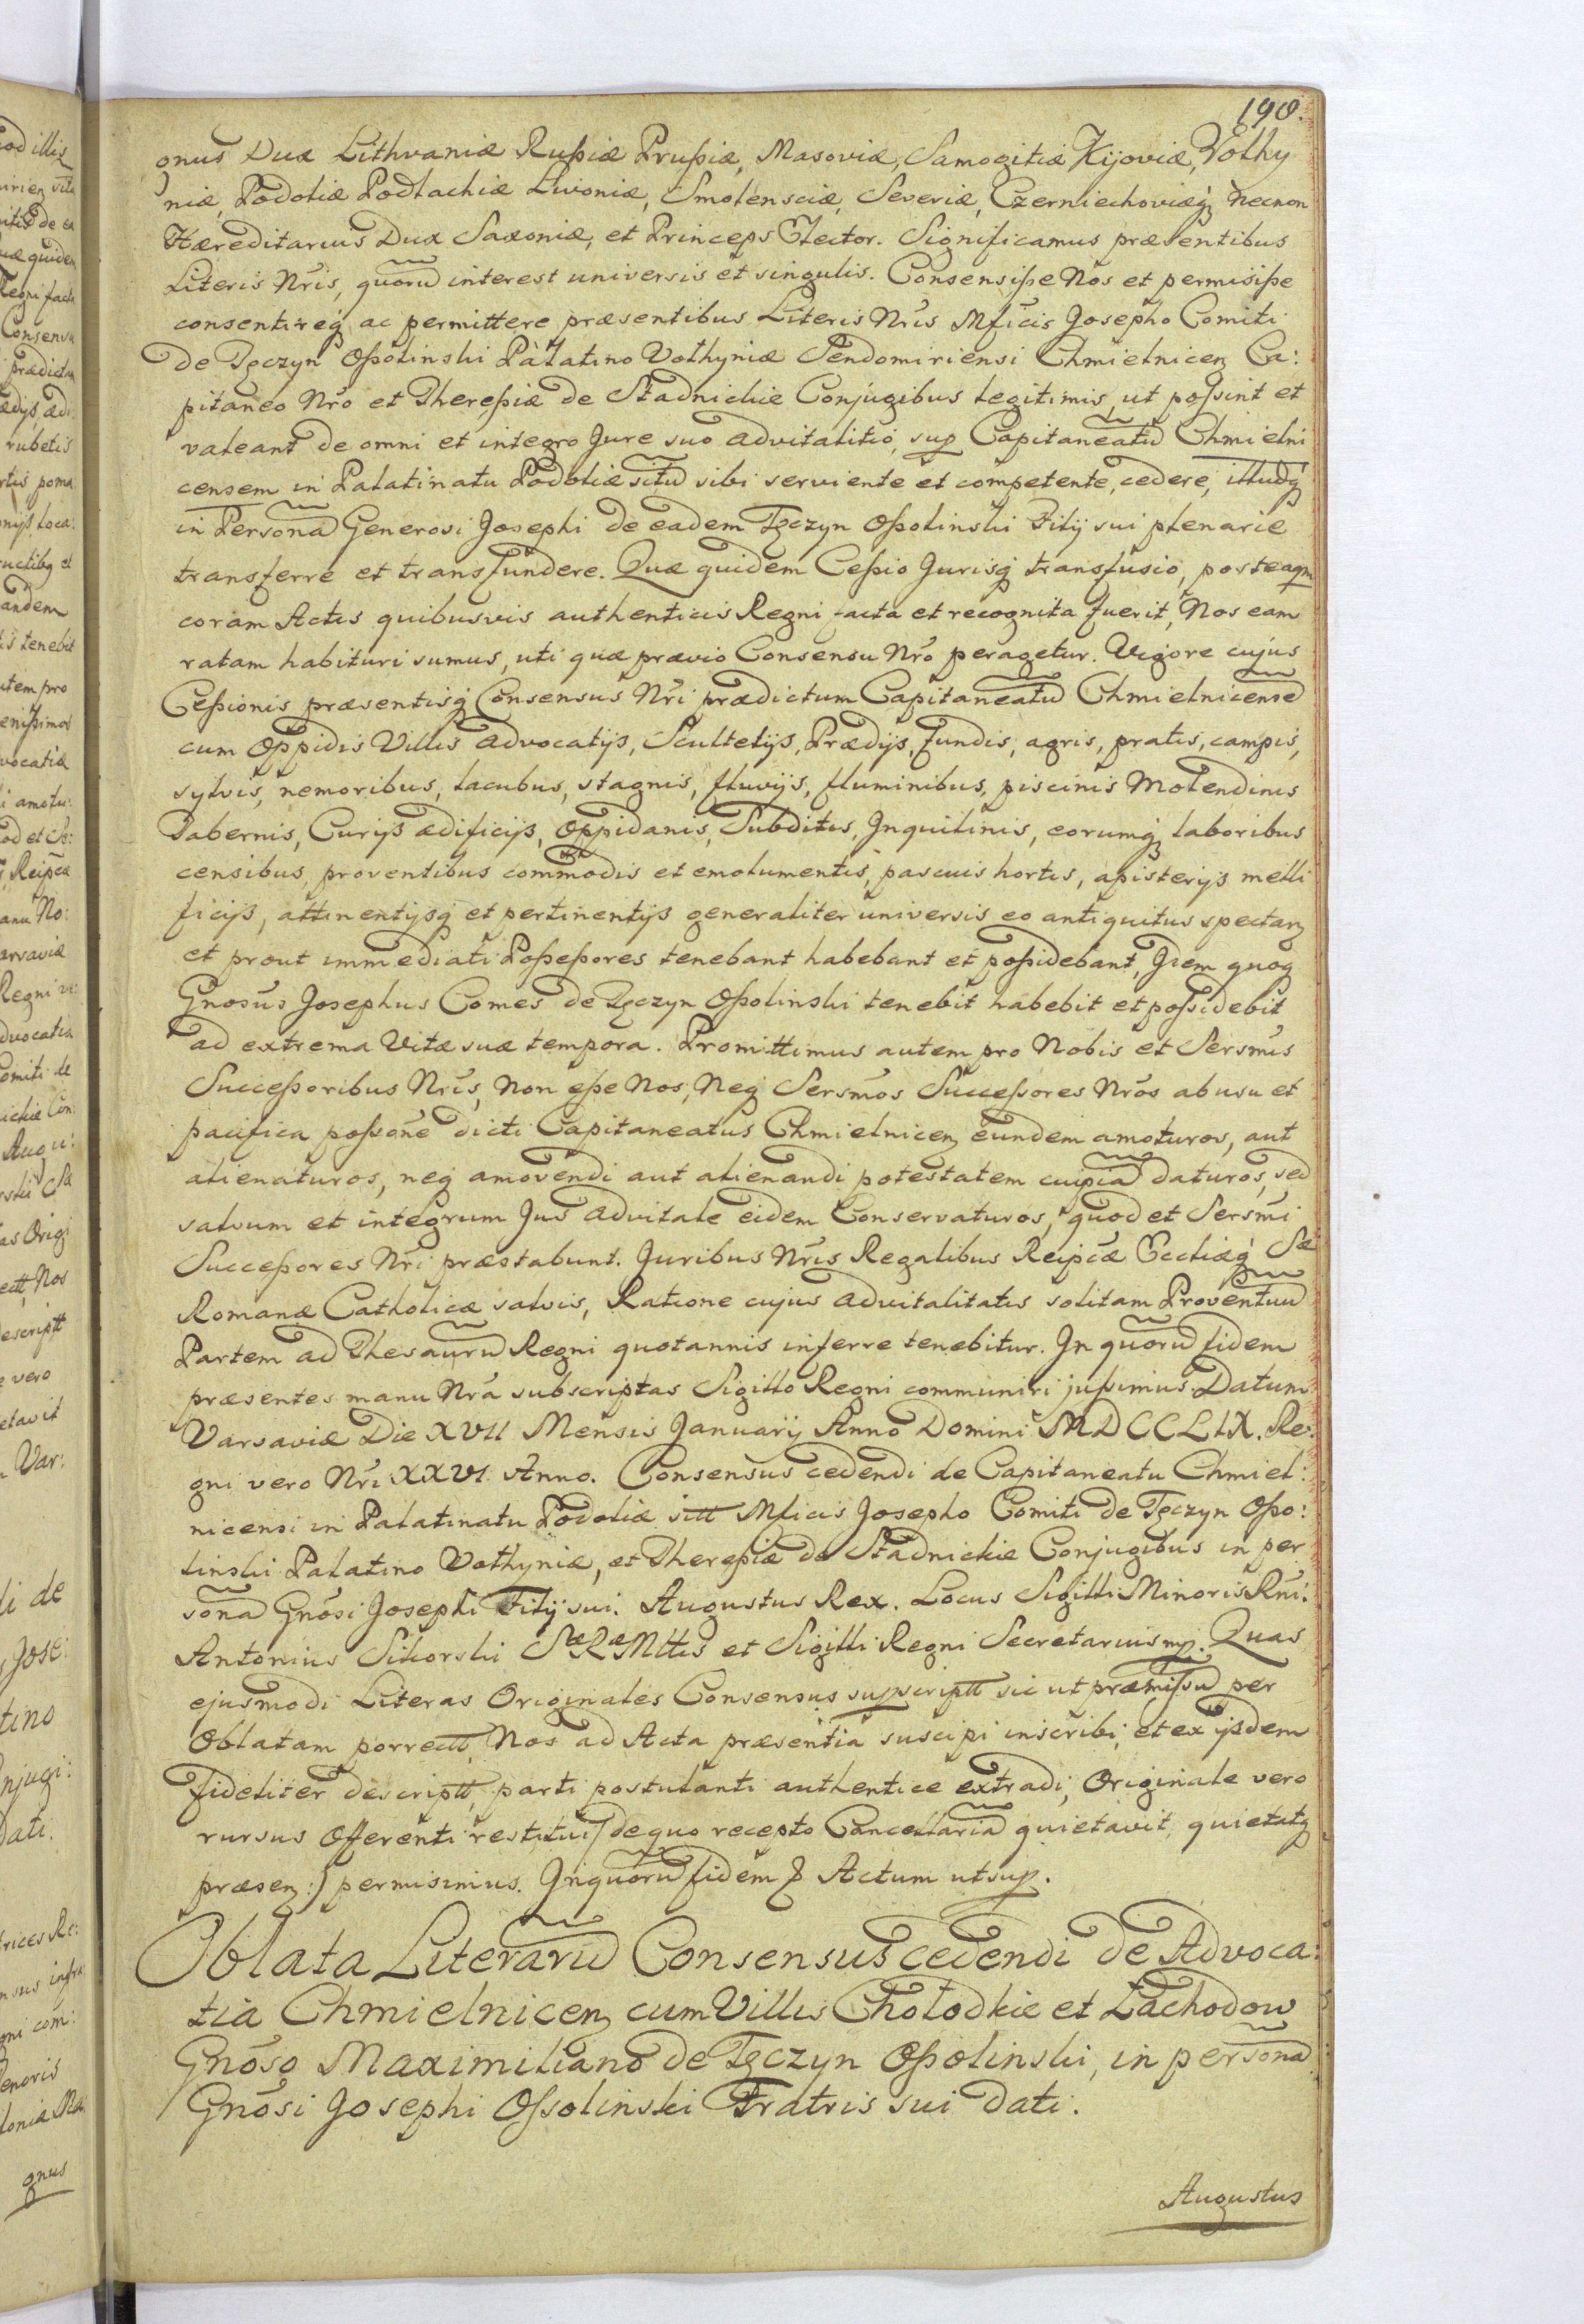 190.
gnus Dux Lithvaniæ Rußiæ Prußiæ, Masoviæ, Samogitiæ Kijoviæ, Volhy
niæ, Podoliæ Podlachiæ Livoniæ, Smolensciæ, Severiæ, Czerniechoviæq̃ necnon
Hæreditarius Dux Saxoniæ, et Princeps Elector. Significamus præsentibus
Literis Nr̃is, quorũ interest universis et singulis. Consensiße Nos et permisiße
consentireq̃ ac permittere præsentibus Literis Nr̃is Mficis Josepho Comiti
de Tęczyn Oßolinski Palatino Volhyniæ Sendomiriensi Chmielnicen̨ Ca:
pitaneo Nr̃o et Thereßiæ de Stadnickie Conjugibus legitimis, ut poßint et
valeant de omni et integro Jure suo advitalitio, sup̱ Capitaneatũ Chmielni
censem in Palatinatu Podoliæ sitũ sibi serviente et competente, cedere, illudq̃
in Personã Generosi Josephi de eadem Tęczyn Oßolinski Filij sui plenarie
transferre et transfundere. Quæ quidem Ceßio Jurisq̃ transfusio, posteaqm
coram Actis quibusvis authenticis Regni facta et recognita fuerit, Nos eam
ratam habituri sumus, uti quæ prævio Consensu Nr̃o peragetur. Vigore cujus
Ceßionis præsentisq̃ Consensus Nr̃i prædictum Capitaneatũ Chmielnicensẽ
cum Oppidis Villis advocatijs, Scultetijs, Prædijs, fundis, agris, pratis, campis,
sylvis, nemoribus, lacubus, stagnis, fluvijs, fluminibus, piscinis Molendinis
Tabernis, Curijs ædificijs, Oppidanis, Subditis, Inquilinis, eorumq̃ laboribus
censibus, proventibus commodis et emolumentis, pascuis hortis, apisterijs melli
ficijs, attinentijsq̃ et pertinentijs generaliter universis eo antiquitus spectan̨
et prout immediati Poßeßores tenebant habebant et poßidebant, Idem quoq̃
Gnosus Josephus Comes de Tęczyn Oßolinski tenebit habebit et poßidebit
ad extrema Vitæ suæ tempora. Promittimus autem pro Nobis et Sersm̃is
Succeßoribus Nr̃is, non eße Nos, Neq̃ Sersm̃os Succeßores Nr̃os ab usu et
pacifica poßone dicti Capitaneatus Chmielnicen̨ eundem amoturos, aut
alienaturos, neq̃ amovendi aut alienandi potestatem cuipiã daturos, sed
salvum et integrum Jus advitale eidem Conservaturos, quod et Sersm̃i
Succeßores Nr̃i præstabunt. Juribus Nr̃is Regalibus Reipcæ Eccliæq̃ Sæ
Romanæ Catholicæ salvis, Ratione cujus advitalitatis solitam Proventuũ
Partem ad Thesaurũ Regni quotannis inferre tenebitur. In quorũ fidem
præsentes manu Nr̃a subscriptas Sigillo Regni communiri jußimus. Datum
Varsaviæ Die XVII Mensis Januarij Anno Domini MDCCLIX. Re:
gni vero Nr̃i XXVI. Anno. Consensus cedendi de Capitaneatu Chmiel:
nicensi in Palatinatu Podoliæ sitt Mficis Josepho Comiti de Tęczyn Oßo:
linski Palatino Volhyniæ, et Thereßiæ de Stadnickie Conjugibus in per
sonã Gnosi Josephi Filij sui. Augustus Rex. Locus Sigilli Minoris Rni.
Antonius Sikorski Sæ Ræ Mttis et Sigilli Regni Secretarius mp. Quas
ejusmodi Literas Originales Consensus supscriptt sic ut præmißũ per
Oblatam porrectt, Nos ad Acta præsentia suscipi inscribi, et ex ijsdem
fideliter descriptt, parti postulanti authentice extradi, Originale vero
rursus Offerenti restitui /: de quo recepto Cancellariã quietavit, quietatq̃
præsen̨ :/ permisimus. In quorũ fidem & Actum ut sup̱.
Oblata Literarũ Consensus cedendi de Advoca:
tia Chmielnicen̨ cum Villis Chołodkie et Łachodow
Gnoso Maximiliano de Tęczyn Oßolinski, in personã
Gnosi Josephi Oßolinski Fratris sui dati.
Augustus